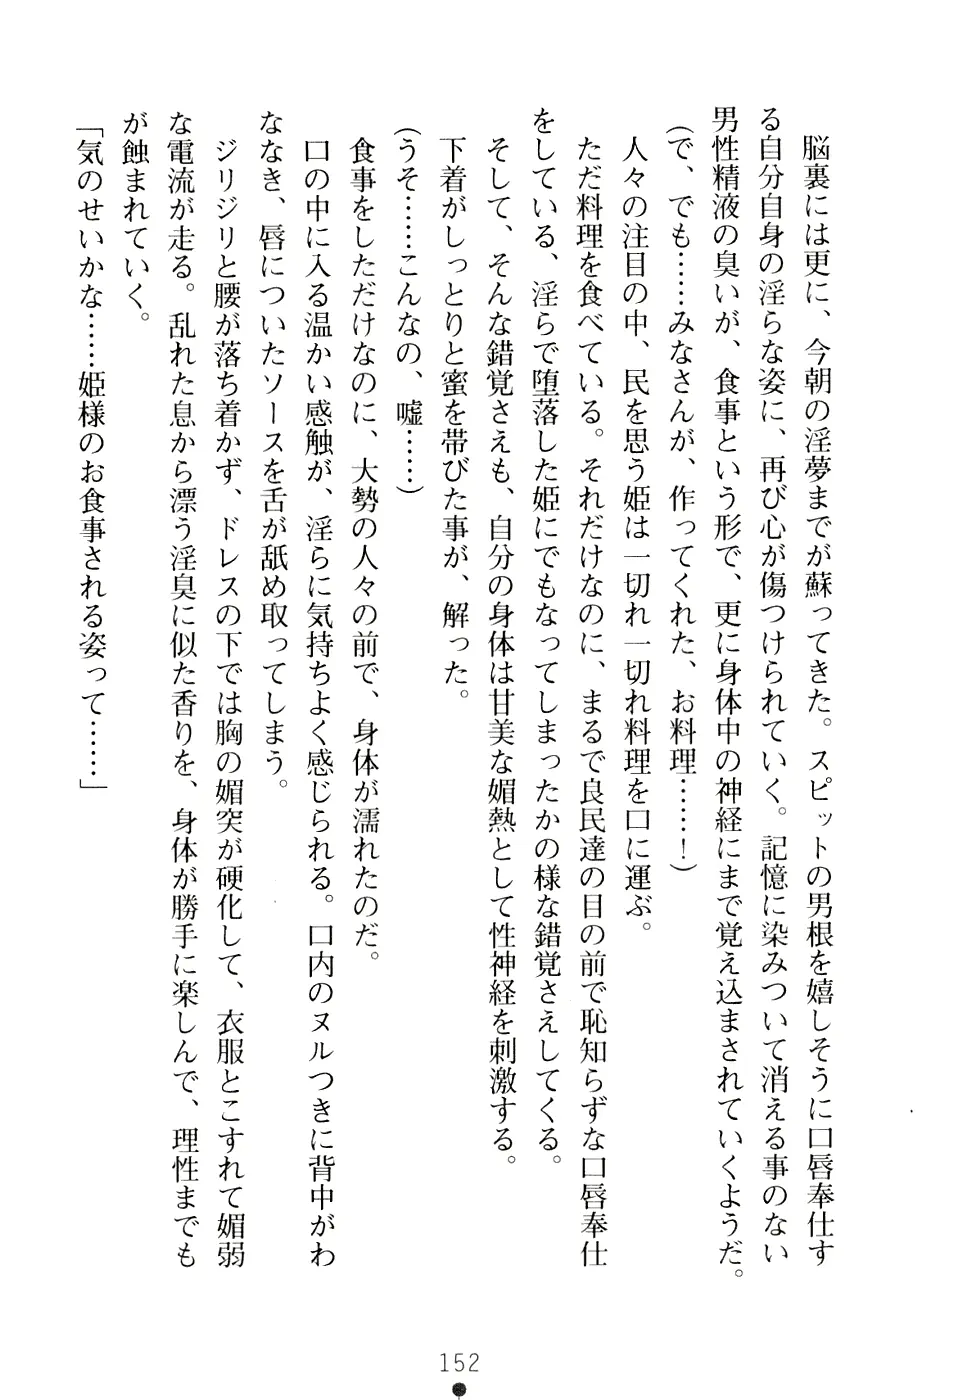 脳裏には更に、今朝の淫夢までが蘇ってきた。スピットの男根を嬉しそうに口唇奉仕す
る自分自身の淫らな姿に、再び心が傷つけられていく。記憶に染みついて消える事のない
男性精液の臭いが、食事という形で、更に身体中の神経にまで覚え込まされていくようだ。
(で、でも……みなさんが、作ってくれた、お料理……!)
人々の注目の中、民を思う姫は一切れ一切れ料理を口に運ぶ。
ただ料理を食べている。それだけなのに、まるで良民達の目の前で恥知らずな口唇奉仕
をしている、淫らで堕落した姫にでもなってしまったかの様な錯覚さえしてくる。
そして、そんな錯覚さえも、自分の身体は甘美な媚熱として性神経を刺激する。
下着がしっとりと蜜を帯びた事が、解った。
(うそ……こんなの、嘘……)
食事をしただけなのに、大勢の人々の前で、身体が濡れたのだ。
口の中に入る温かい感触が、淫らに気持ちよく感じられる。口内のヌルつきに背中がわ
ななき、唇についたソースを舌が舐め取ってしまう。
ジリジリと腰が落ち着かず、ドレスの下では胸の媚突が硬化して、衣服とこすれて媚弱
な電流が走る。乱れた息から漂う淫臭に似た香りを、身体が勝手に楽しんで、理性までも
が蝕まれていく。
「気のせいかな……姫様のお食事される姿って……」
152